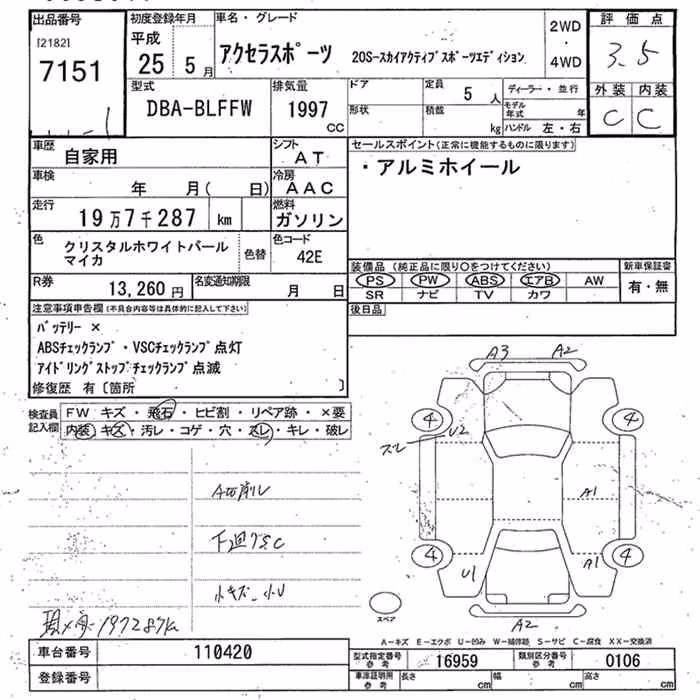 出品番号
[2182]
7151
初度登録年月
平成
25 5月
車名・グレード
アクセラスポーツ 20S-スカイアクティブスポーツエディション
2WD
・
4WD
評価点
3.5
外装 内装
C C
型式
DBA-BLFFW
排気量
1997
CC
ドア
形状
定員
5人
積載
kg
ディーラー・並行
モデル年式 年
ハンドル 左・右
車歴
自家用
シフト
AT
車検
年 月( 日)
冷房
AAC
走行
19万7千287 km
燃料
ガソリン
色
クリスタルホワイトパール
マイカ
色替
色コード
42E
R券
13,260円
名変通知期限
月 日
セールスポイント(正常に機能するものに限ります)
・アルミホイール
装備品 (純正品に限り○をつけてください)
PS PW ABS エアB AW
SR ナビ TV カワ
新車保証書
有・無
後日品
注意事項申告欄(不具合内容等は具体的に記入して下さい)
バッテリー ×
ABSチェックランプ・VSCチェックランプ点灯
アイドリングストップチェックランプ点滅
修復歴 有〔箇所 〕
検査員
記入欄
FW キズ・飛石・ヒビ割・リペア跡・×要
内装・キズ・汚レ・コゲ・穴・スレ・キレ・破レ
A3 A2
4 4
U2
スレ
A1
4 4
U1 A1
A2
スペア
下廻りSC
小キズ 小U
197287K
A-キズ E-エクボ U-凹み W-補修跡 S-サビ C-腐食 XX-交換済
車台番号
110420
登録番号
型式指定番号
参考
16959
類別区分番号
参考
0106
車庫証明用
参考
長さ cm
幅 cm
高さ cm